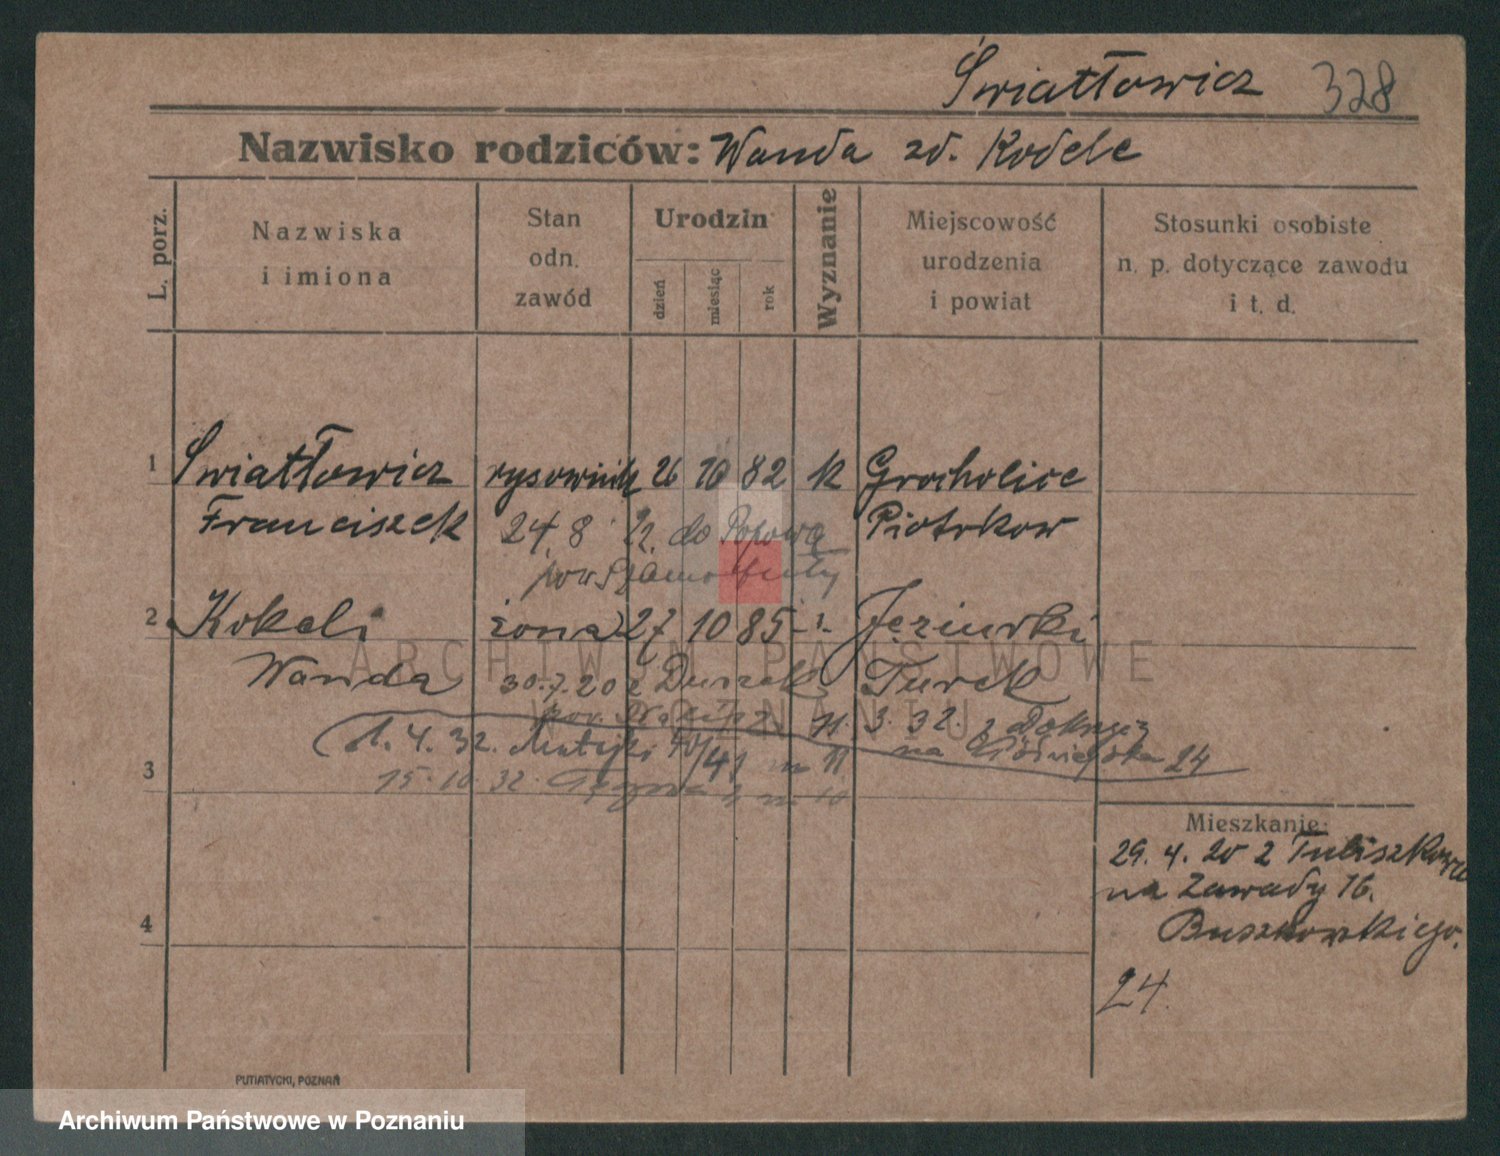 Światłowicz 328
Nazwisko rodziców: Wanda zd. Kodele
L. porz.
Nazwiska
i imiona
Stan
odn.
zawód
Urodzin
dzień
miesiąc
rok
Wyznanie
Miejscowość
urodzenia
i powiat
Stosunki osobiste
n. p. dotyczące zawodu
i t. d.
1 Światłowicz rysownik 26 10 82 k Grocholice
Franciszek Piotrków
24. 8 22. do Popowa
pow. Szamotuły
2 Kokeli żona 27 10 85
Wanda 30.7.20 z Turek
11. 3. 32. z
na 24
1. 4. 32. Matejki 40/41 m 11
3
15.10.32. m 10
Mieszkanie:
29. 4. 20 z Tuliszkowa
na Zawady 16.
24.
4
PUTIATYCKI, POZNAŃ
ARCHIWUM PAŃSTWOWE
W POZNANIU
Archiwum Państwowe w Poznaniu